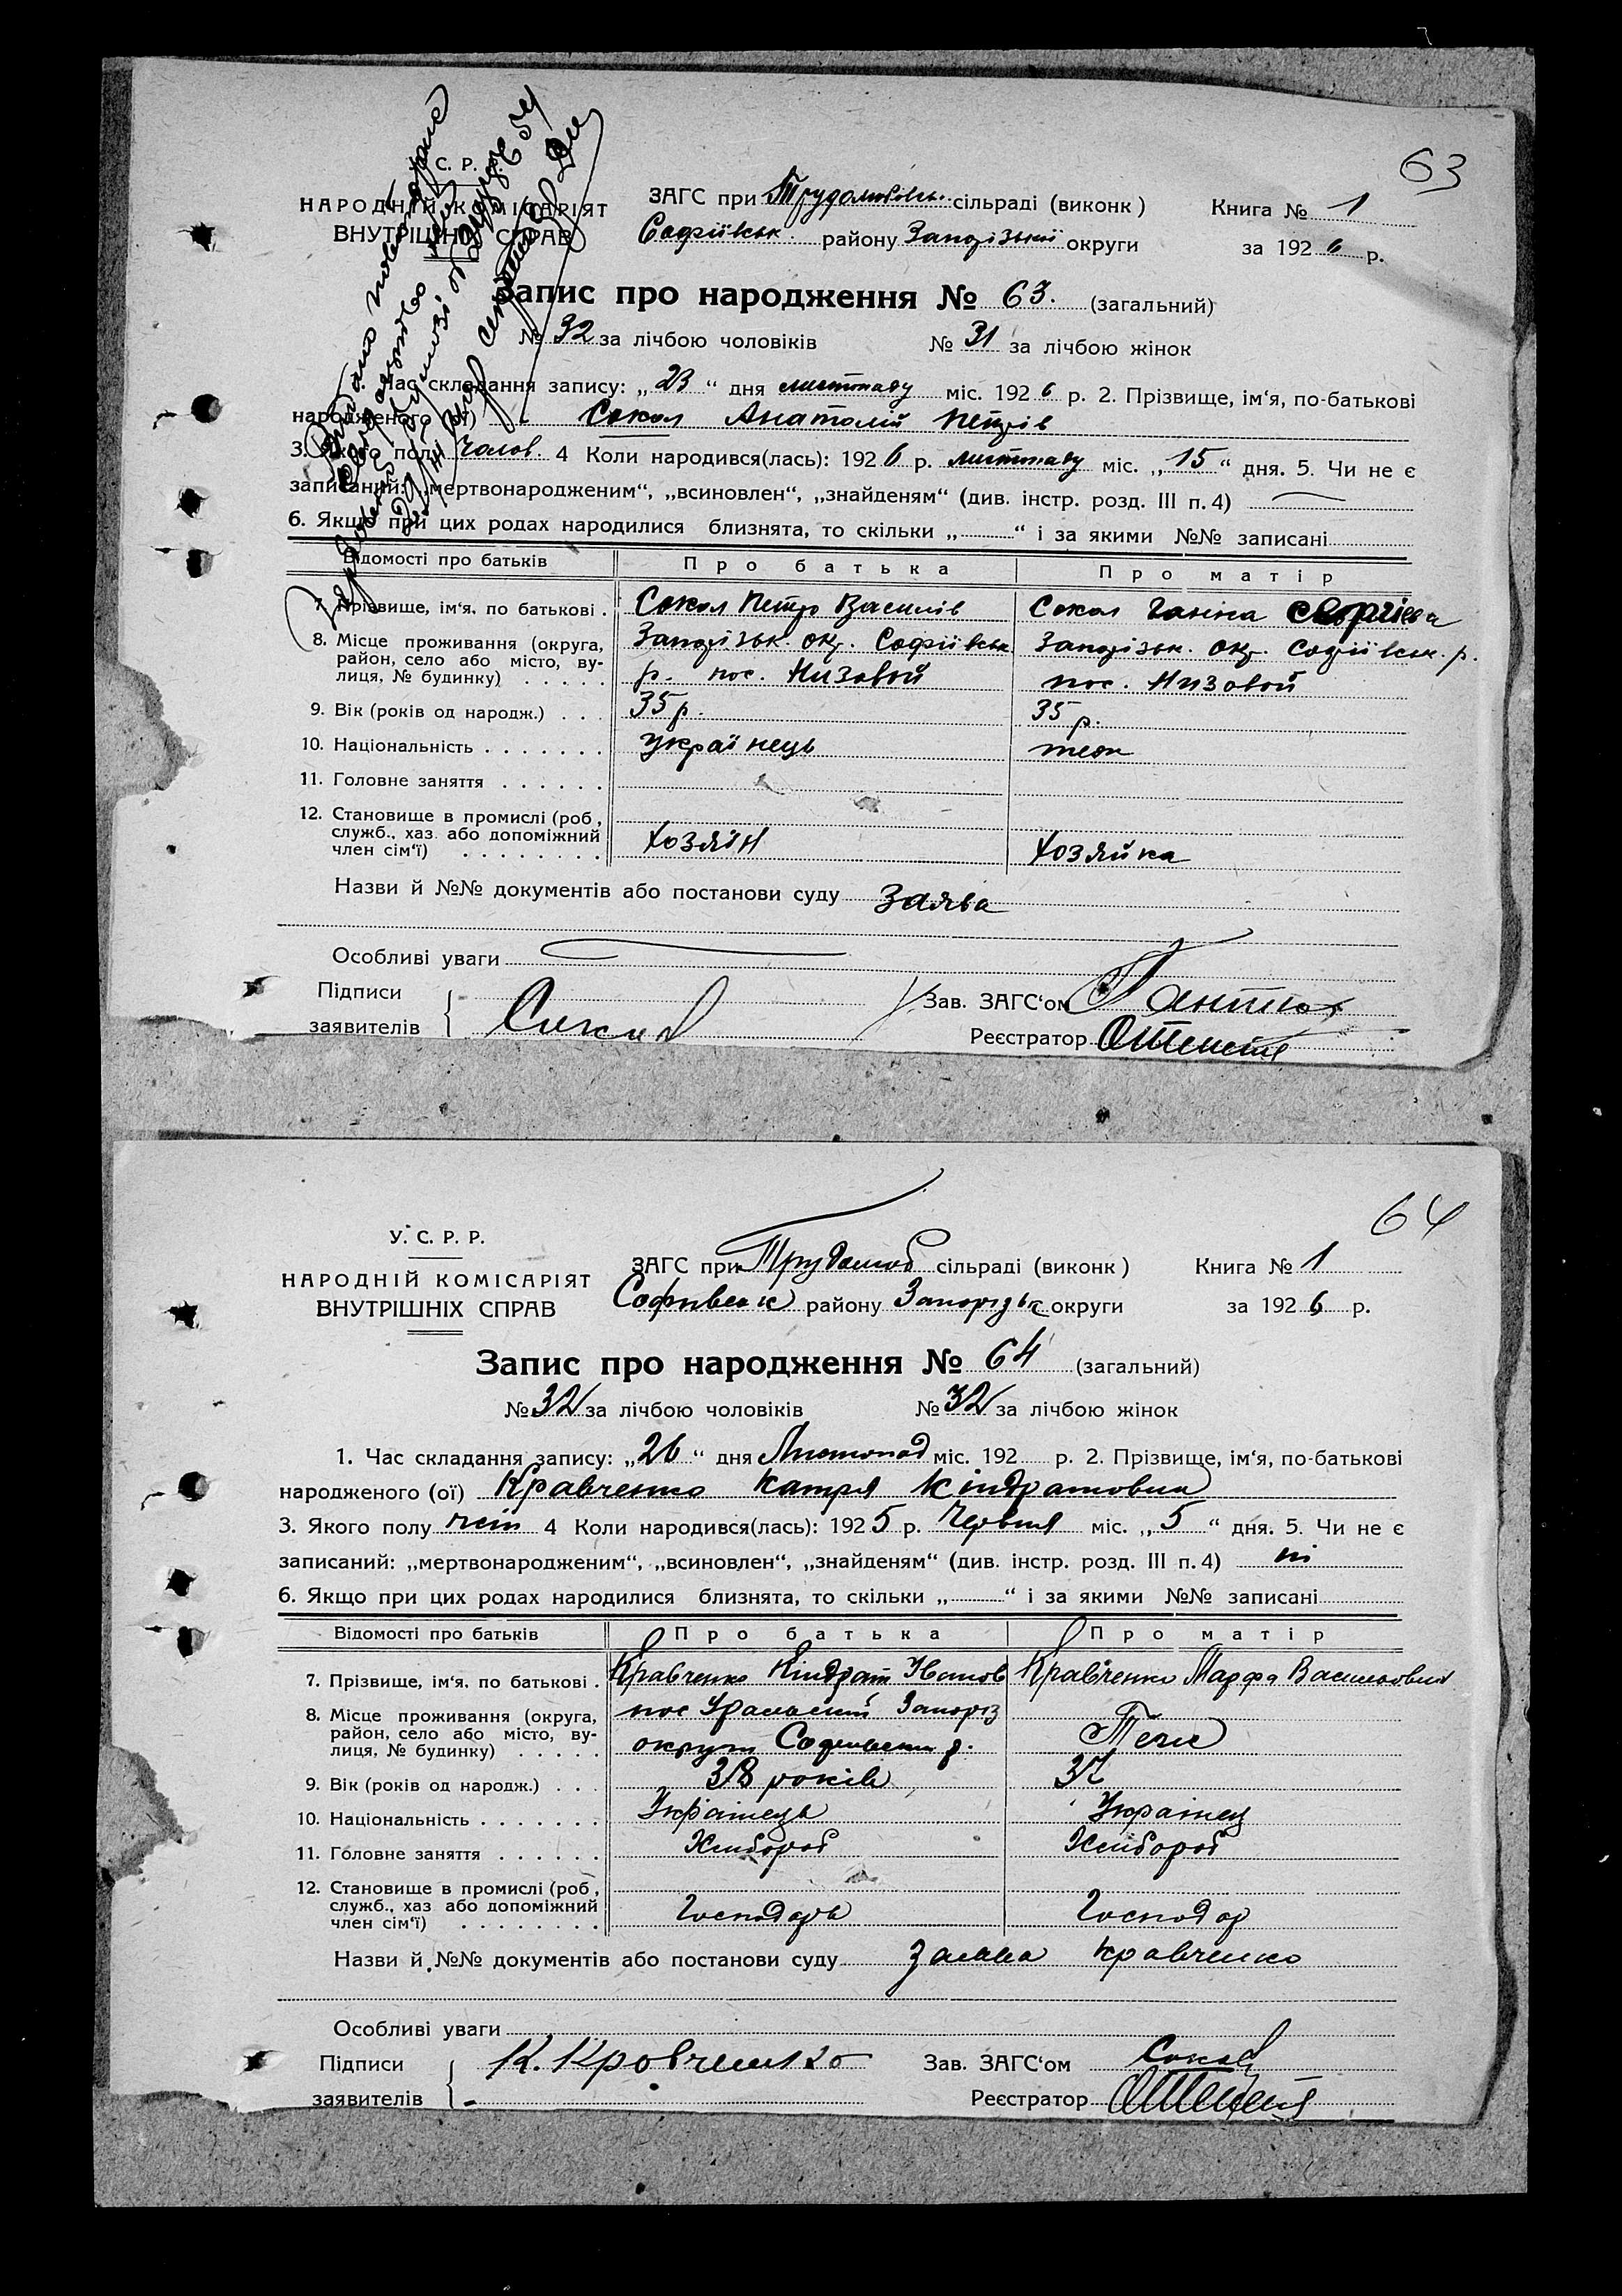 63
С. Р.
НАРОДНІЙ КОМІСАРІЯТ
ВНУТРІШНІХ СПРАВ
ЗАГС при Трудолюбівськ. сільраді (виконк)
Софіївськ. району Запорізької округи
Книга № 1
за 1926 р.
Запис про народження № 63. (загальний)
№ 32 за лічбою чоловіків № 31 за лічбою жінок
Час складання запису: „23“ дня листопаду міс. 1926 р. 2. Прізвище, ім‘я, по-батькові
народженого (ої) Сокол Анатолій Петрів
3. Якого полу Чолов. 4 Коли народився(лась): 1926 р. листопаду міс. „15“ дня. 5. Чи не є
записаний: „мертвонародженим“, „всиновлен“, „знайденям“ (див. інстр. розд. III п. 4)
6. Якщо при цих родах народилися близнята, то скільки „ “ і за якими №№ записані
Відомості про батьків Про батька Про матір
7. Прізвище, ім‘я, по батькові . Сокол Петро Василів Сокол Ганна
8. Місце проживання (округа, район, село або місто, вулиця, № будинку) Запорізьк. окр. Софіївськ. Запорізьк. окр. Софіївськ. р.
р. пос. Низовой пос. Низовой
9. Вік (років од народж.) . . . 35 р. 35 р.
10. Національність українець теж
11. Головне заняття
12. Становище в промислі (роб, служб., хаз. або допоміжний член сім‘ї) Хозяїн Хозяйка
Назви й №№ документів або постанови суду Заява
Особливі уваги
Підписи
заявителів Сокол
Зав. ЗАГС‘ом
Реєстратор
64
У. С. Р. Р.
НАРОДНІЙ КОМІСАРІЯТ
ВНУТРІШНІХ СПРАВ
ЗАГС при Трудолюб сільраді (виконк)
Софиевск району Запорізьк округи
Книга № 1
за 1926 р.
Запис про народження № 64 (загальний)
№ 32 за лічбою чоловіків № 32 за лічбою жінок
1. Час складання запису: „26“ дня Листопад міс. 192 р. 2. Прізвище, ім‘я, по-батькові
народженого (ої) Кравченко Катря Кіндратовна
3. Якого полу жін 4 Коли народився(лась): 1925 р. Червня міс. „5“ дня. 5. Чи не є
записаний: „мертвонародженим“, „всиновлен“, „знайденям“ (див. інстр. розд. III п. 4) ні
6. Якщо при цих родах народилися близнята, то скільки „ “ і за якими №№ записані
Відомості про батьків Про батька Про матір
7. Прізвище, ім‘я, по батькові . Кравченко Кіндрат Іванов Кравченко Марфа Васильовна
8. Місце проживання (округа, район, село або місто, вулиця, № будинку) пос Уральский Запоріз
округи р. Теж
9. Вік (років од народж.) . . . 38 років 37
10. Національність Українець Українец
11. Головне заняття Хлибороб Хлибороб
12. Становище в промислі (роб, служб., хаз або допоміжний член сім‘ї) Господарь Господар
Назви й №№ документів або постанови суду Заява Кравченко
Особливі уваги
Підписи
заявителів К. Кровченко
Зав. ЗАГС‘ом Сокол
Реєстратор